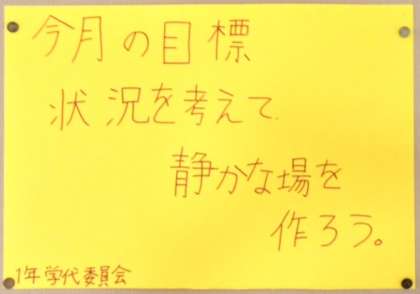 今月の目標
状況を考えて
静かな場を
作ろう。
1年学代委員会